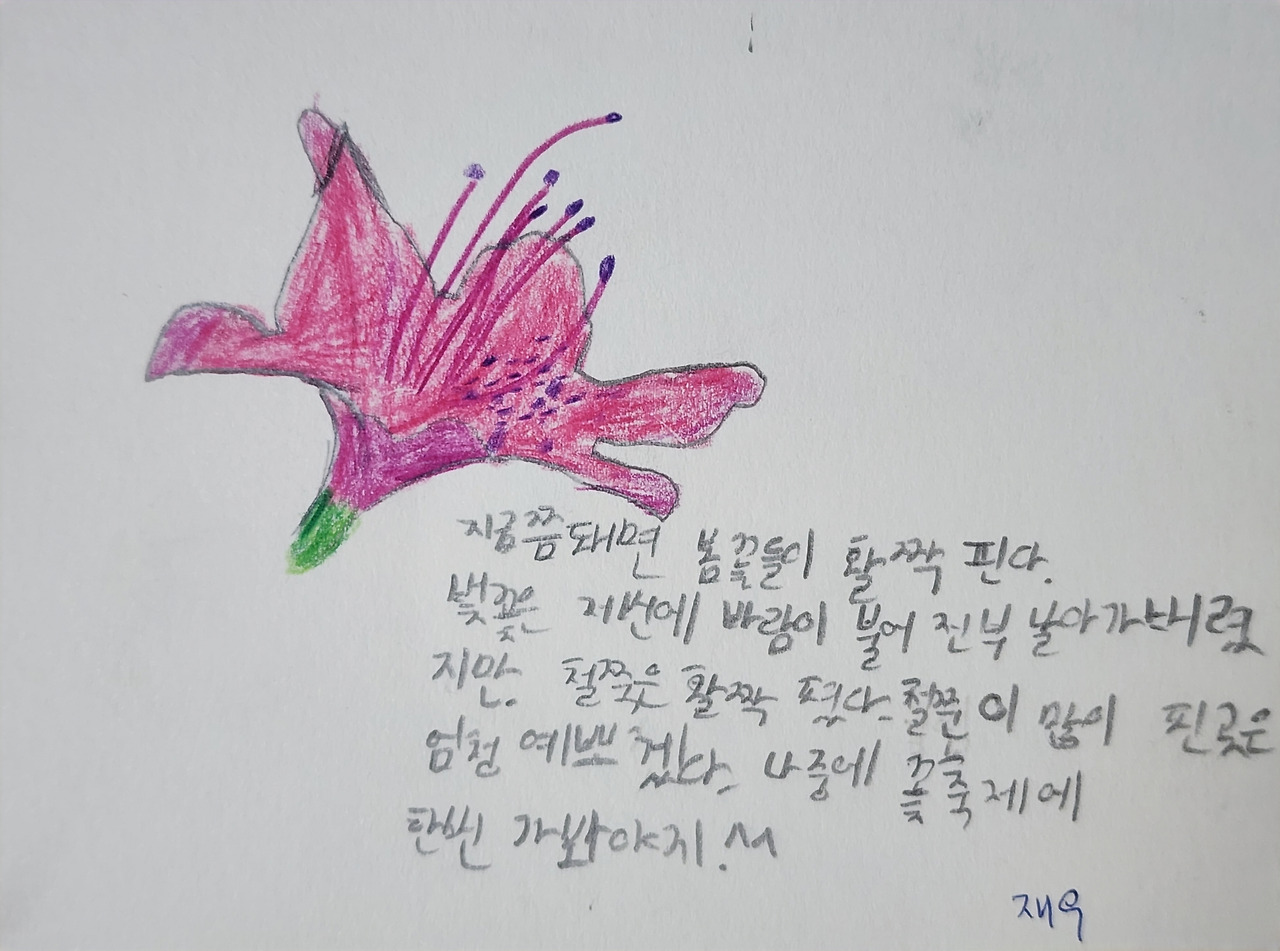 지금쯤돼면 봄꽃들이 활짝 핀다.
벚꽃은 저번에 바람이 불어 전부 날아가버렸
지만. 철쭉은 활짝 폈다. 철쭉이 많이 핀곳은
엄청 예쁘겠다. 나중에 꽃축제에
한번 가봐야지. ^^
재우